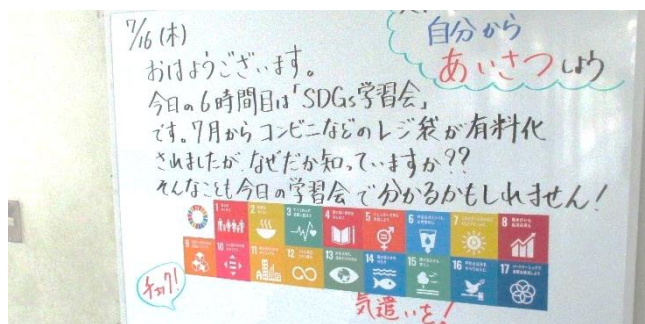 7/16(木)
自分から
あいさつしよう
おはようございます。
今日の6時間目は「SDGs学習会」
です。7月からコンビニなどのレジ袋が有料化
されましたが、なぜだか知っていますか??
そんなことも今日の学習会で分かるかもしれません!
1 2 3 4 5 6 7 8
9 10 11 12 13 14 15 16 17
チェック!
気遣いを!